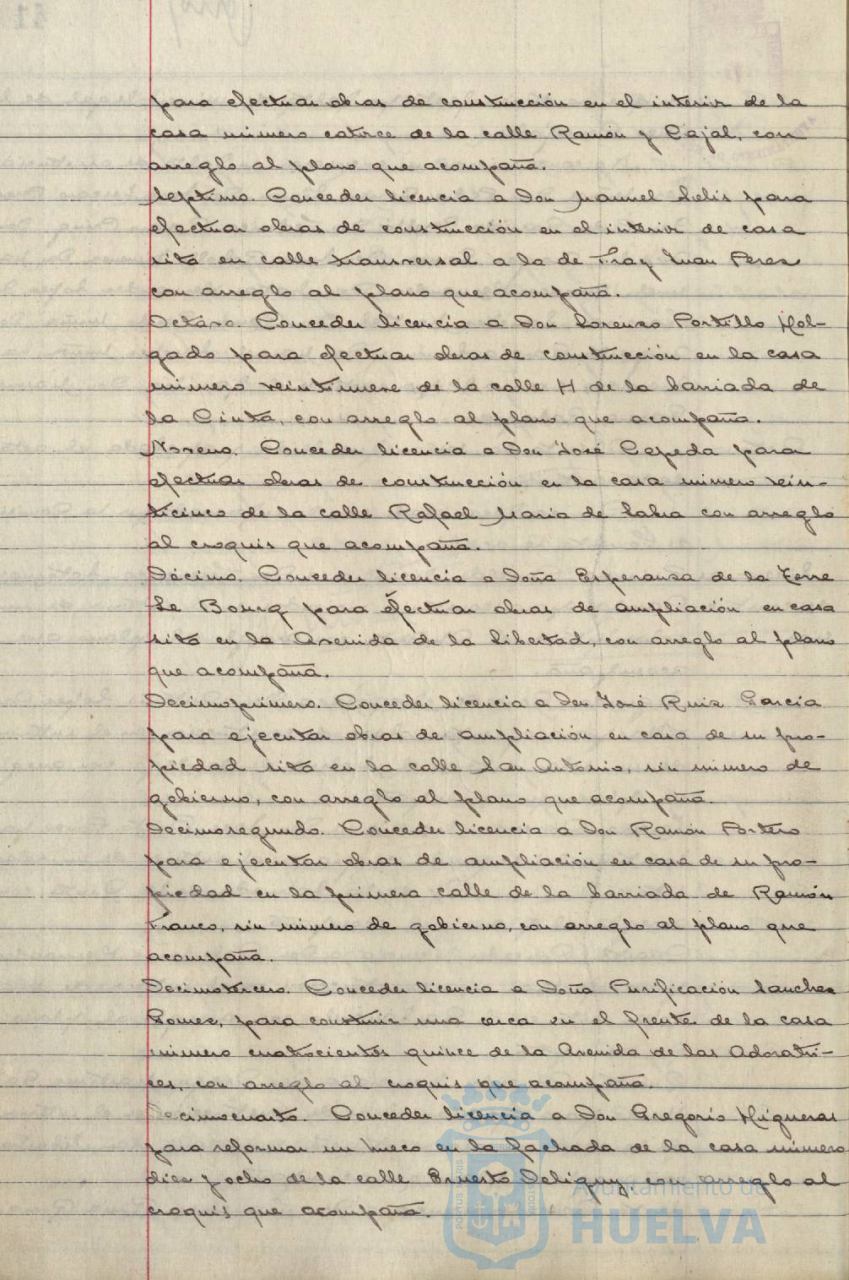 para efectuar obras de construcción en el interior de la
casa número catorce de la calle Ramón y Cajal, con
arreglo al plano que acompaña.
Septimo. Conceder licencia a Don Manuel Solis para
efectuar obras de construcción en el interior de casa
sita en calle transversal a la de Fray Juan Perez
con arreglo al plano que acompaña.
Octavo. Conceder licencia a Don Lorenzo Portillo Hol-
gado para efectuar obras de construcción en la casa
número veintinueve de la calle H de la barriada de
la Cinta, con arreglo al plano que acompaña.
Noveno. Conceder licencia a Don José Cepeda para
efectuar obras de construcción en la casa número vein-
ticinco de la calle Rafael Maria de Labra con arreglo
al croquis que acompaña.
Décimo. Conceder licencia a Doña Esperanza de la Torre
Le Bourg para efectuar obras de ampliación en casa
sita en la Avenida de la Libertad, con arreglo al plano
que acompaña.
Decimoprimero. Conceder licencia a Don José Ruiz García
para ejecutar obras de ampliación en casa de su pro-
piedad sita en la calle San Antonio, sin número de
gobierno, con arreglo al plano que acompaña.
Decimosegundo. Conceder licencia a Don Ramón Portero
para ejecutar obras de ampliación en casa de su pro-
piedad en la primera calle de la barriada de Ramón
Franco, sin número de gobierno, con arreglo al plano que
acompaña.
Decimotercero. Conceder licencia a Doña Purificación Sanchez
Gomez, para construir una cerca en el frente de la casa
número cuatrocientos quince de la Avenida de las Adoratri-
ces, con arreglo al croquis que acompaña.
Decimocuarto. Conceder licencia a Don Gregorio Higueras
para reformar un hueco en la fachada de la casa número
diez y ocho de la calle Ernesto Deligny, con arreglo al
croquis que acompaña.
Ayuntamiento de
HUELVA